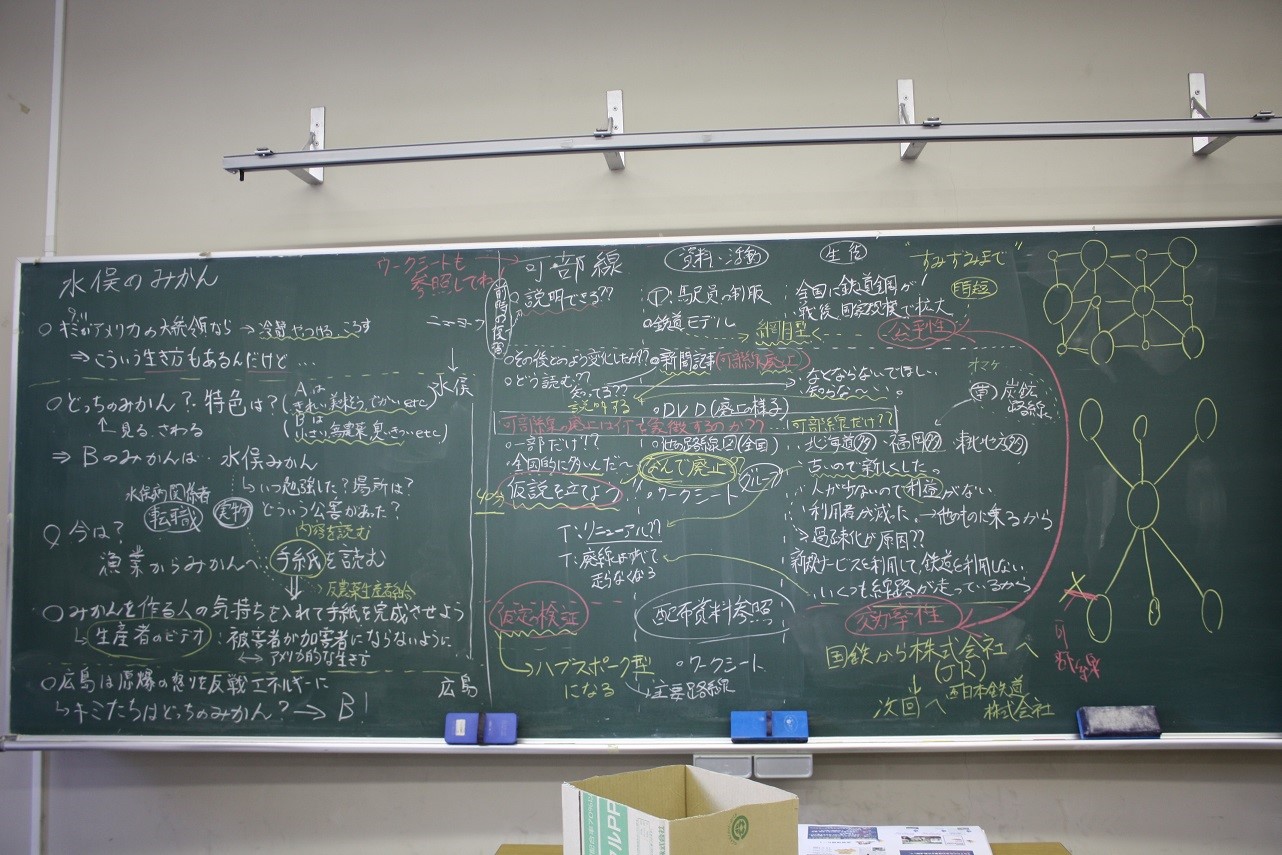 水俣のみかん
○キミがアメリカの大統領なら→冷量 やっつける、ころす
⇒こういう生き方もあるんだけど…
ニューヨーク
↓
水俣
○どっちのみかん?・特色は?
(Aは きれい、美味そう、でかい etc)
(Bは 小さい、無農薬、臭い、きつい etc)
↑見る、さわる
⇒Bのみかんは… 水俣みかん
↳いつ勉強した?場所は?
どういう公害があった?
水俣病関係者
転職
実物
Q 今は?
内容を読む
漁業からみかんへ 手紙を読む
反農薬生産者給
○みかんを作る人の気持ちを入れて手紙を完成させよう
↳生産者のビデオ:被害者が加害者にならないように
↔アメリカ的な生き方
○広島は原爆の怒りを反戦エネルギーに
広島
↳キミたちはどっちのみかん?→B!
ワークシートも→
参照してね
可部線
資料・活動
生徒
"すみずみまで"
前時の復習
○説明できる??
①:駅員の制服
○鉄道モデル
:全国に鉄道網が
戦後、国家政授で拡大
網目型く
公平性
○その後どのよう変化したか??
○新聞記事(可部線廃止)
などならないでほしい
○どう読む??
知ってる??
知らな〜い。
説明する
○DVD(廃止の様子)
可部線の廃止は何を象徴するのか??
可部線だけ??
オマケ
炭鉱
路線
○一部だけ!?
○他の路線図(全国)
北海道 福岡 東北
○全国的に多いんだ〜
なんで廃止??
古いので新しくした。
40分
仮説を立てよう
○ワークシート
グループ
人が少ないので利益がない
利用者が減った。→他のものに乗るから
T:リニューアル??
過疎化が原因??
T:廃線は
走らなくなる
サービスを利用して、鉄道を利用しない
いくつも経路が走っているから
仮定の検証
配布資料参照
効率性
ハブスポーク型
になる
○ワークシート
→主要路線
国鉄から株式会社へ
(JR)
↓
次回へ
西日本鉄道
株式会社
可部線